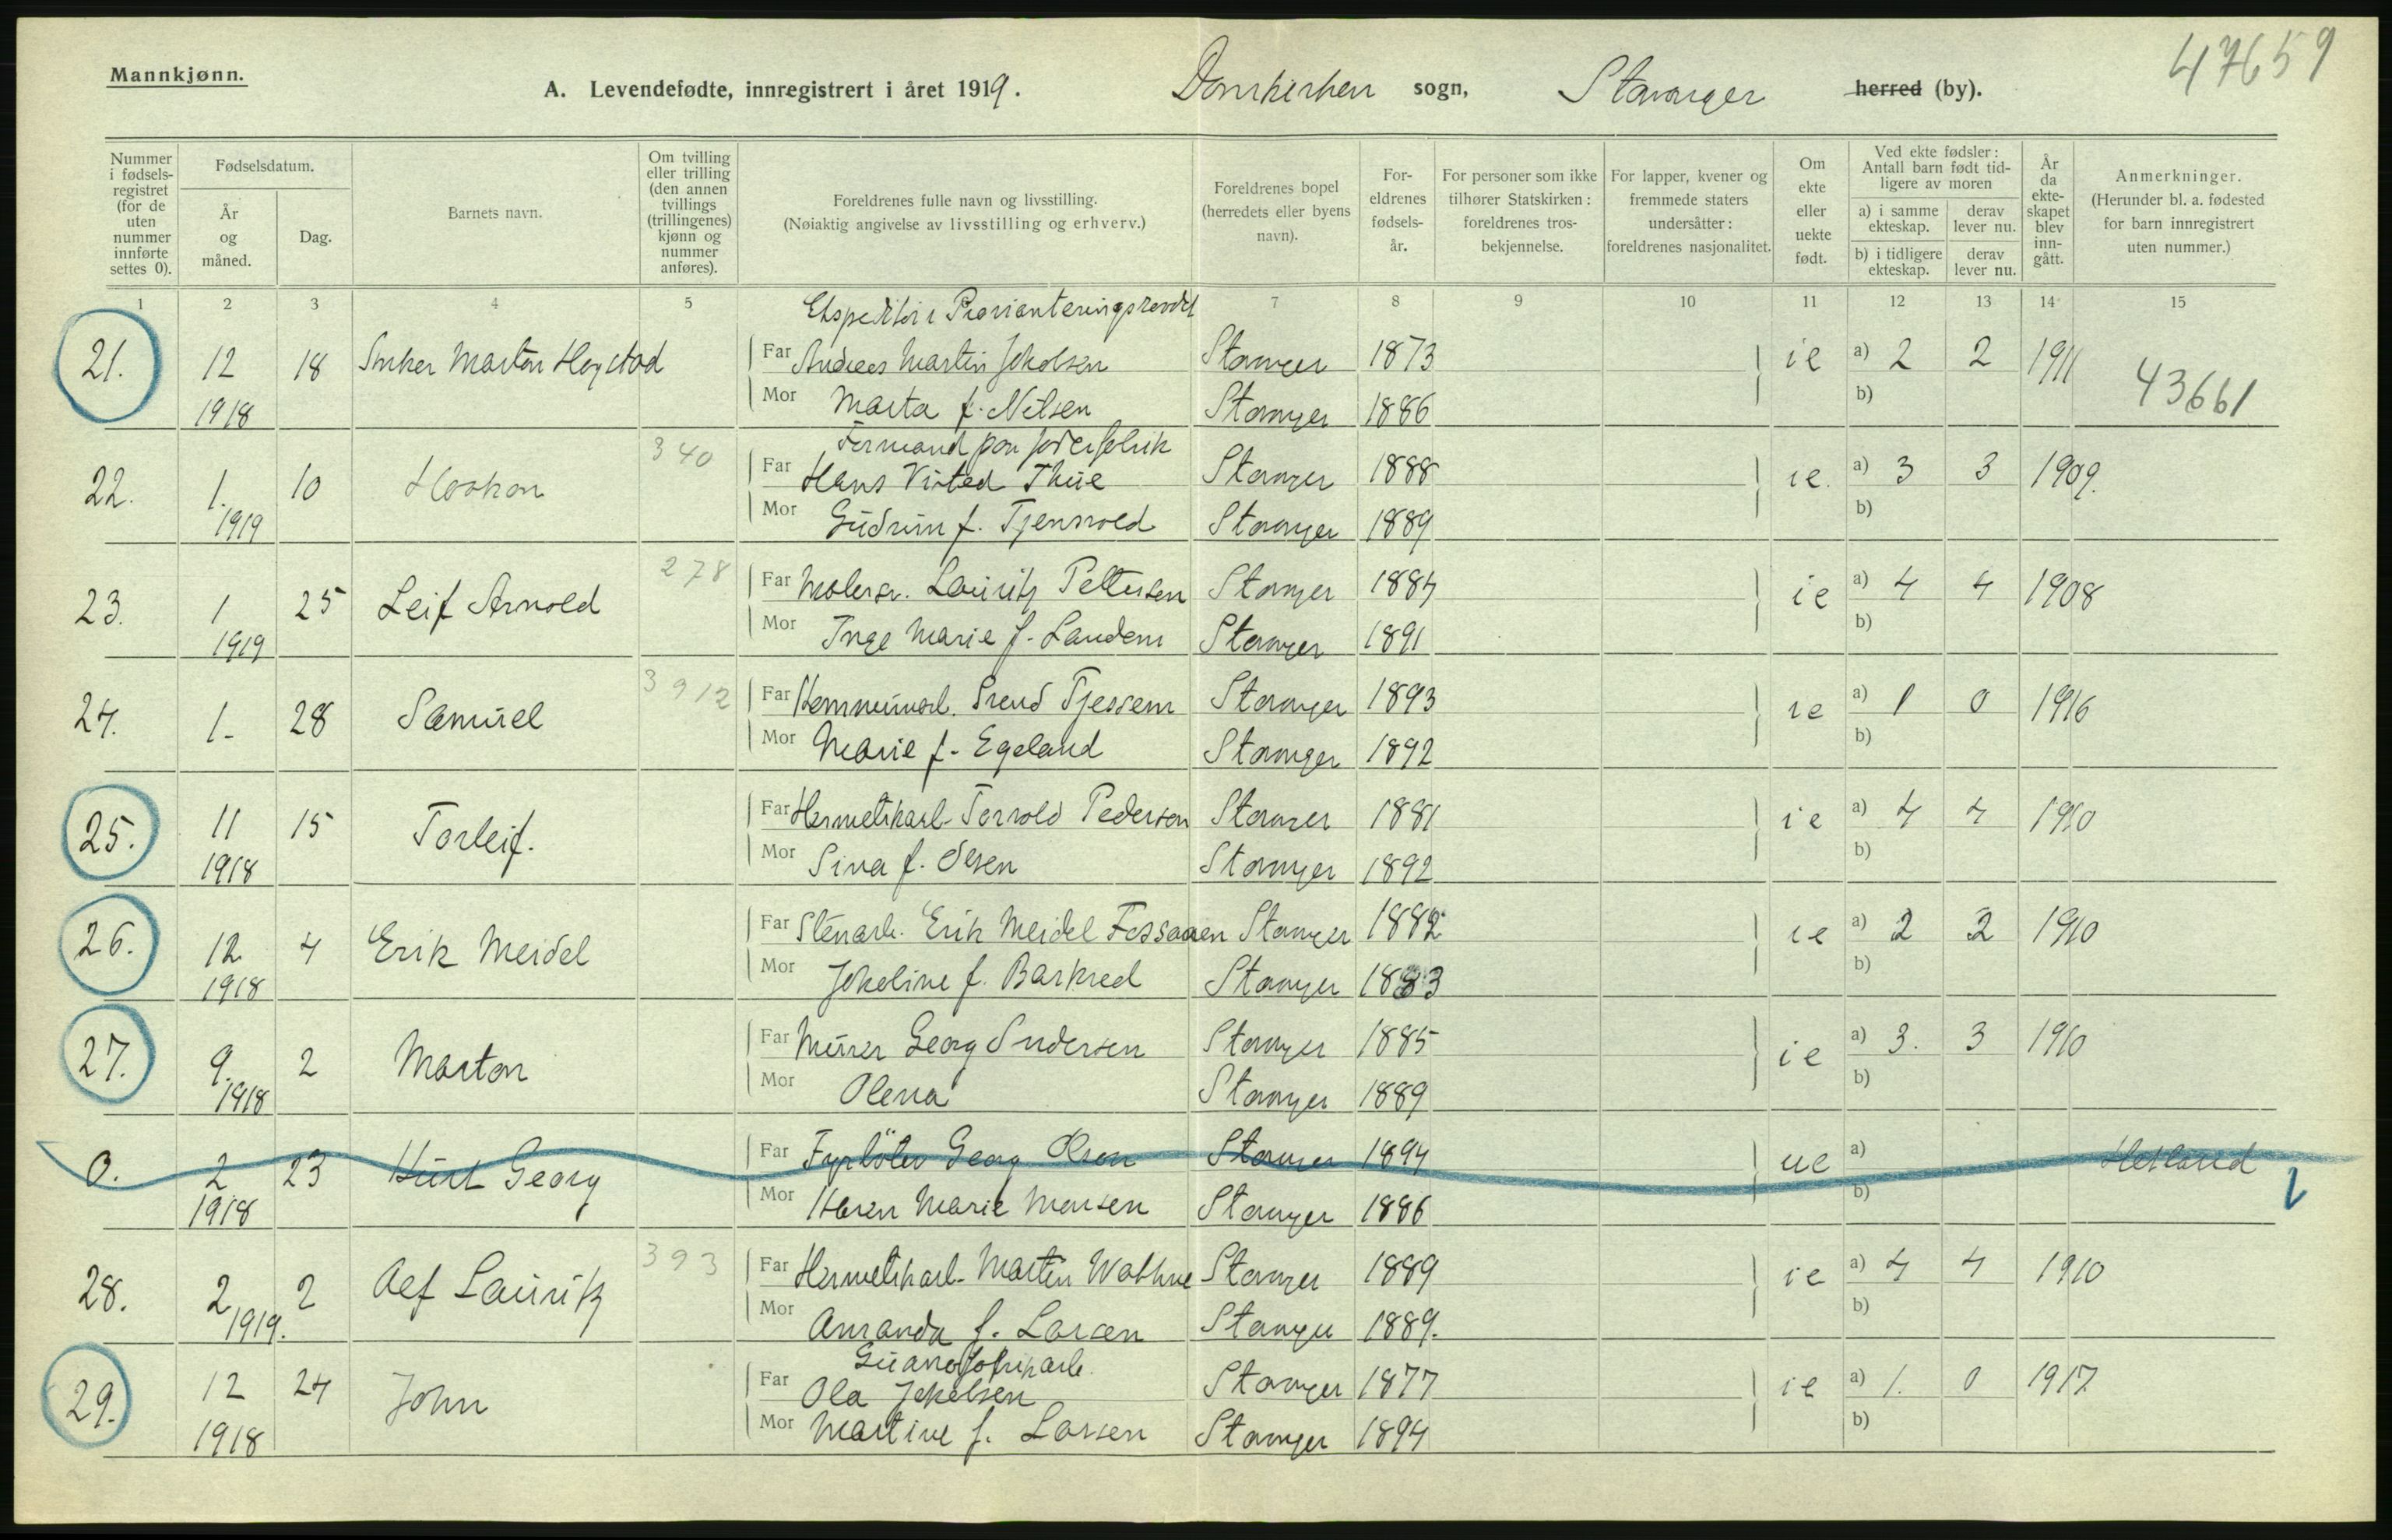 47659
Mannkjønn.
A. Levendefødte, innregistrert i året 1919. Domkirken sogn, Stavanger herred (by).
Nummer i fødsels-registret (for de uten nummer innførte settes 0).
Fødselsdatum.
År og måned.
Dag.
Barnets navn.
Om tvilling eller trilling (den annen tvillings (trillingenes) kjønn og nummer anføres).
Foreldrenes fulle navn og livsstilling. (Nøiaktig angivelse av livsstilling og erhverv.)
Foreldrenes bopel (herredets eller byens navn).
For-eldrenes fødsels-år.
For personer som ikke tilhører Statskirken: foreldrenes tros-bekjennelse.
For lapper, kvener og fremmede staters undersåtter: foreldrenes nasjonalitet.
Om ekte eller uekte født.
Ved ekte fødsler: Antall barn født tid-ligere av moren
a) i samme ekteskap. derav lever nu.
b) i tidligere ekteskap. derav lever nu.
År da ekte-skapet blev inn-gått.
Anmerkninger. (Herunder bl. a. fødested for barn innregistrert uten nummer.)
1 2 3 4 5 7 8 9 10 11 12 13 14 15
Ekspeditør i Provianteringsraadet
21. 12 18 Far Andreas Martin Jakobsen Stavanger 1873 ie a) 2 2 1911
1918 Mor Marta f. Nilsen Stavanger 1886 b) 43661
340 Formand paa
22. 1. 10 Haakon Far Hans Visted Thue Stavanger 1888 ie. a) 3 3 1909.
1919 Mor Gudrun f. Tjensvold Stavanger 1889 b)
278
23. 1 25 Leif Arnold Far Malersv. Lauritz Pettersen Stavanger 1887 ie a) 4 4 1908
1919 Mor Inga Marie f. Landem Stavanger 1891 b)
3912
24. 1- 28 Samuel Far Svend Tjessem Stavanger 1893 ie a) 1 0 1916
Mor Marie f. Egeland Stavanger 1892 b)
25. 11 15 Torleif. Far Hermetikarb. Torvold Pedersen Stavanger 1881 ie a) 4 4 1910
1918 Mor Sina f. Olsen Stavanger 1892 b)
26. 12 4 Erik Meidel Far Stenarb. Erik Meidel Fossaaen Stavanger 1882 ie a) 2 2 1910
1918 Mor Jakobine f. Barkved Stavanger 1883 b)
27. 9. 2 Marton Far Murer Georg Andersen Stavanger 1885 ie a) 3. 3 1910
1918 Mor Olena Stavanger 1889 b)
0. 2 23 Kurt Georg Far Fyrbøter Georg Olsen Stavanger 1894 ue a) Hetland
1918 Mor Karen Marie Monsen Stavanger 1886 b)
393
28. 2 2 Alf Lauritz Far Hermetikarb. Martin Wathne Stavanger 1889 ie a) 4 4 1910
1919. Mor Amanda f. Larsen Stavanger 1889. b)
Guanofabrikarb.
29. 12 24 John Far Ola Jakobsen Stavanger 1877 ie a) 1. 0 1917
1918 Mor Martine f. Larsen Stavanger 1894 b)